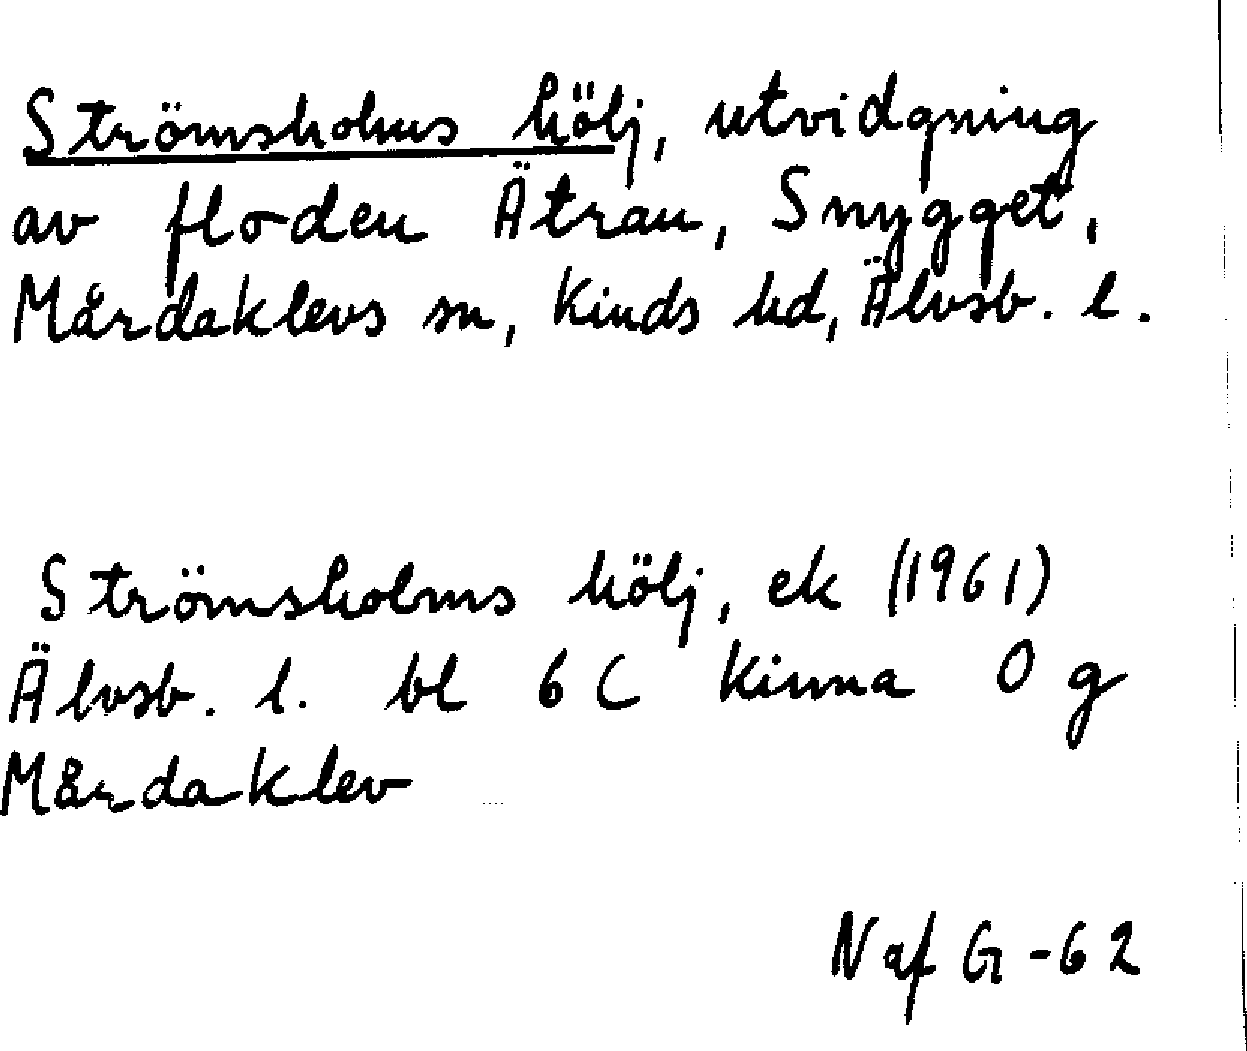 Strömsholms hölj, utvidgning
av floden Ätran, Snygget,
Mårdaklevs sn, Kinds hd, Älvsb. l.
Strömsholms hölj, ek (1961)
Älvsb. l. bl 6 C Kinna O g
Mårdaklev
Naf G-62